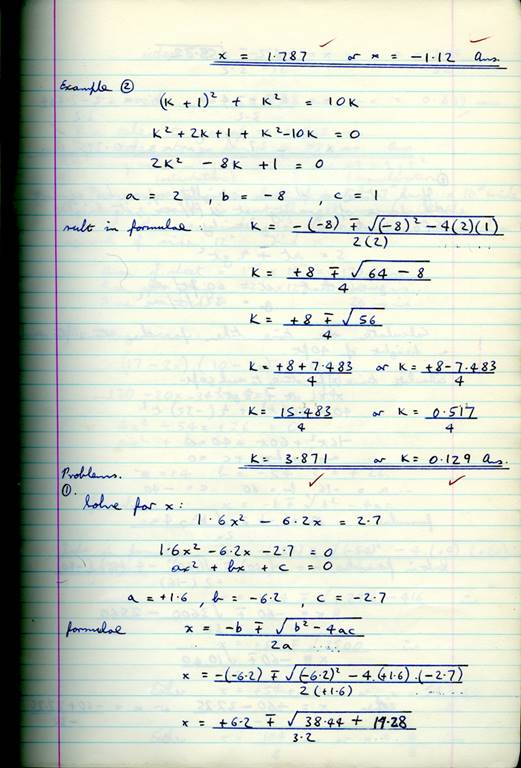 x = 1.787 or x = -1.12 Ans.
Example ②
(K + 1)² + K² = 10K
K² + 2K + 1 + K² - 10K = 0
2K² - 8K + 1 = 0
a = 2 , b = -8 , c = 1
in formulae : K = -(-8) ∓ √(-8)² - 4(2)(1) / 2(2)
K = +8 ∓ √64 - 8 / 4
K = +8 ∓ √56 / 4
K = +8 + 7.483 / 4 or K = +8 - 7.483 / 4
K = 15.483 / 4 or K = 0.517 / 4
K = 3.871 or K = 0.129 Ans.
Problems.
①.
Solve for x :
1.6x² - 6.2x = 2.7
1.6x² - 6.2x - 2.7 = 0
ax² + bx + c = 0
a = +1.6 , b = -6.2 , c = -2.7
formulae x = -b ∓ √b² - 4ac / 2a
x = -(-6.2) ∓ √(-6.2)² - 4.(+1.6).(-2.7) / 2(+1.6)
x = +6.2 ∓ √38.44 + 17.28 / 3.2